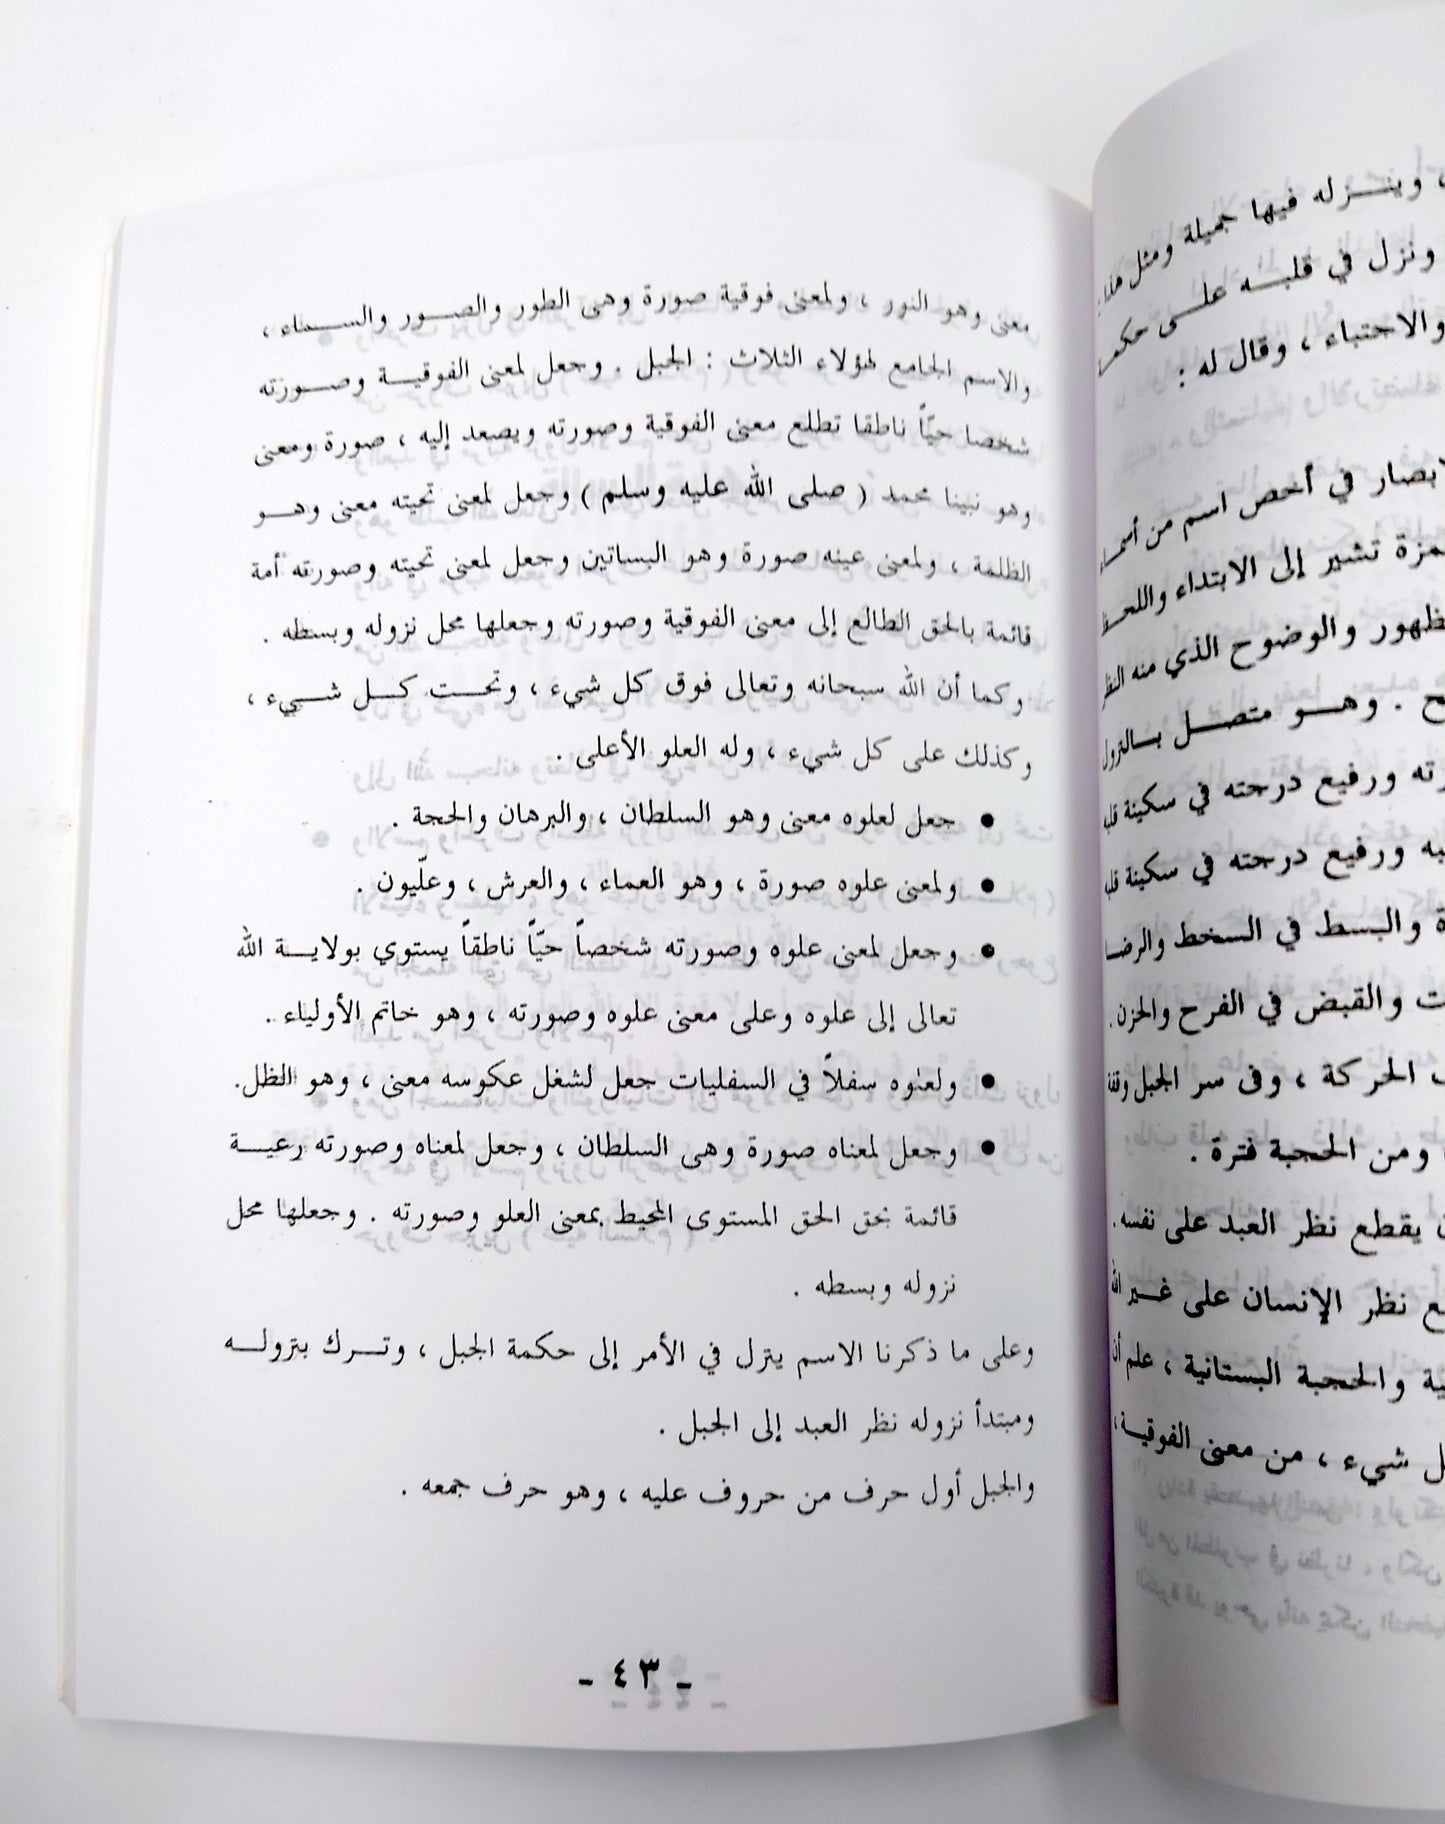 معنى وهو النور ، ولمعنى فوقية صورة وهى الطور والصــور والســماء ،
والاسم الجامع لهؤلاء الثلاث : الجبل . وجعل لمعنى الفوقيــة وصــورته
شخصا حيّاً ناطقا تطلع معنى الفوقية وصورته ويصعد إليه ، صورة ومعنى
وهو نبينا محمد ( صلى الله عليه وسلم ) وجعل لمعنى تحيته معنى وهــو
الظلمة ، ولمعنى عينه صورة وهو البساتين وجعل لمعنى تحيته وصورته أمة
قائمة بالحق الطالع إلى معنى الفوقية وصورته وجعلها محل نزوله وبسطه .
وكما أن الله سبحانه وتعالى فوق كل شيء ، وتحــت كــل شــيء ،
وكذلك على كل شيء ، وله العلو الأعلى .
● جعل لعلوه معنى وهو السلطان ، والبرهان والحجة .
● ولمعنى علوه صورة ، وهو العماء ، والعرش ، وعلّيون .
● وجعل لمعنى علوه وصورته شخصاً حيّاً ناطقاً يستوي بولايــة الله
تعالى إلى علوه وعلى معنى علوه وصورته ، وهو خاتم الأولياء .
● ولعلوه سفلاً في السفليات جعل لشغل عكوسه معنى ، وهو الظل.
● وجعل لمعناه صورة وهى السلطان ، وجعل لمعناه وصورته رعيــة
قائمة بحق الحق المستوى المحيط بمعنى العلو وصورته . وجعلها محل
نزوله وبسطه .
وعلى ما ذكرنا الاسم يتزل في الأمر إلى حكمة الجبل ، وتــرك بتزولــه
ومبتدأ نزوله نظر العبد إلى الجبل .
والجبل أول حرف من حروف عليه ، وهو حرف جمعه .
- ٤٣ -
وينــزله فيها جميلة ومثل هذا
ونزل في قلبــه علــى
والاجتباء ، وقال له :
في أخص اسم من
تشير إلى الابتداء
والوضوح الذي منه
. وهــو متصــل بــالنزول
ورفيع درجته في سكينة قلبه
ورفيع درجته في سكينة قلبه
والبسط في السخط والرضا
والقبض في الفرح والحزن .
الحركة ، وفى سر الجبل وقفة
ومن الحجبة فترة .
يقطع نظر العبد على نفسه .
نظر الإنسان على غــير الله
والحجبة البستانية ، علم أن
شيء ، من معنى الفوقيــة ،